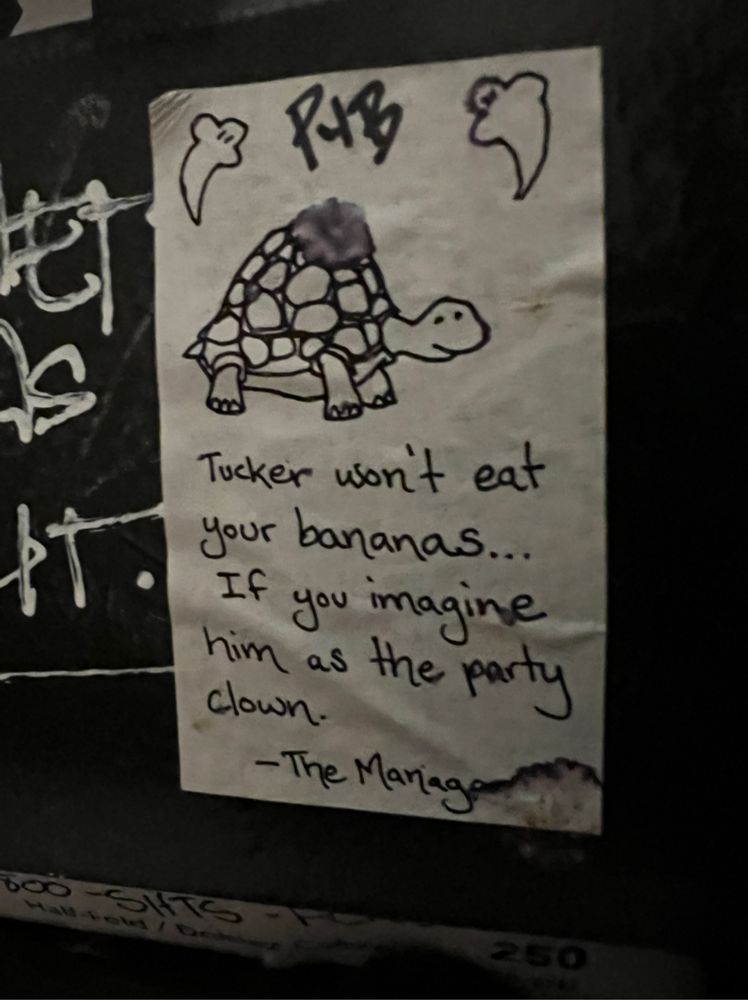 P+B
Tucker won't eat
your bananas...
If you imagine
him as the party
clown.
-The Manag
800 -SHTS -
Half-Fold /
250